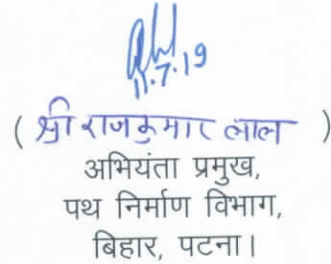 11.7.19
( श्री राजकुमार लाल )
अभियंता प्रमुख,
पथ निर्माण विभाग,
बिहार, पटना।